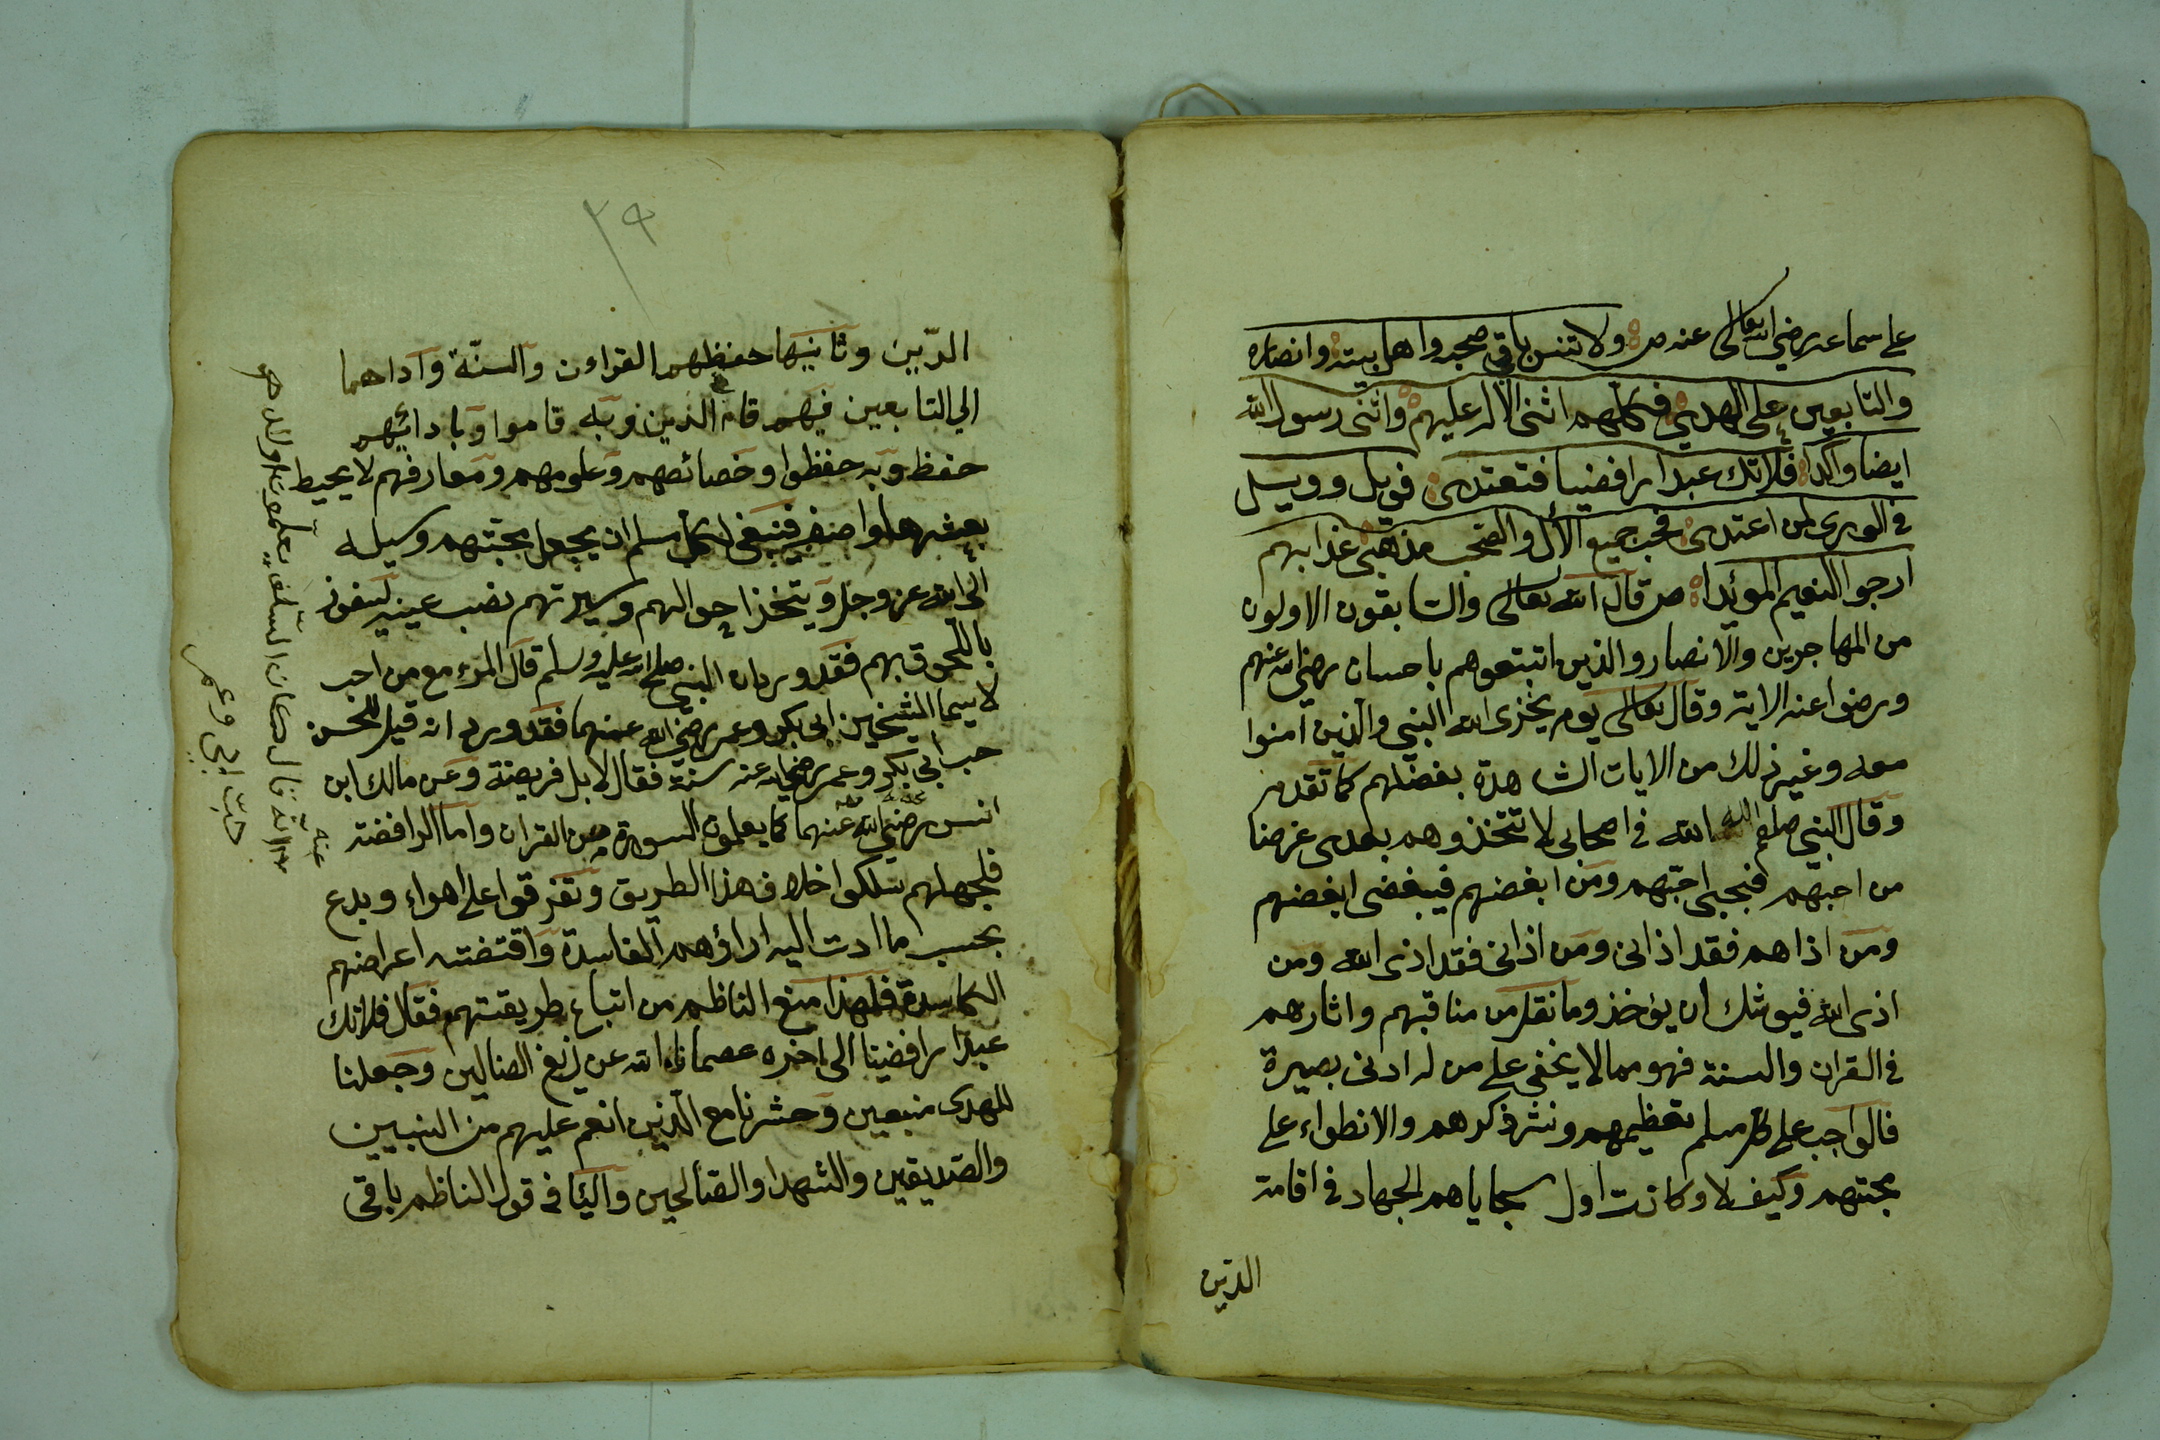 على سماعه رضي الله تعالى عنه ص ولا تنس باقي صحبه واهل بيته وانصاره
والتابعين على الهدى فكلهم اثنى الاله عليهم واثنى رسول الله
ايضا واكدا فلا تك عبدا رافضيا فتعتدى فويل وويل
في الورى لمن اعتدى فحب جميع الآل والصحب مذهبي غدا بهم
ارجوا النعيم المؤبدا ص قال الله تعالى والسابقون الاولون
من المهاجرين والانصار والذين اتبعوهم باحسان رضي الله عنهم
ورضوا عنه الاية وقال تعالى يوم لا يخزى الله النبي والذين امنوا
معه وغير ذلك من الايات الشاهدة بفضلهم كما تقدم
وقال النبي صلعم الله الله في اصحابى لا تتخذوهم بعدى غرضا
من احبهم فبحبى احبهم ومن ابغضهم فببغضى ابغضهم
ومن اذاهم فقد اذانى ومن اذانى فقد اذى الله ومن
اذى الله فيوشك ان يؤخذ وما نقل من مناقبهم واثارهم
في القران والسنة فهو مما لا يخفى على من له ادنى بصيرة
فالواجب على كل مسلم تعظيمهم ونشر ذكرهم والانطواء على
محبتهم وكيف لا وكانت اول سجاياهم الجهاد في اقامة
الدين
٢٩
الدين وثانيها حفظهم القراءن والسنة وآداهما
الى التابعين فبهم قام الدين وبه قاموا وبادائهم
حفظ وبه حفظوا وخصائصهم وعلومهم ومعارفهم لا يحيط
بعشرها واصف فينبغى لكل مسلم ان يجعل محبتهم وسيلة
الى الله عز وجل ويتخذ احوالهم وسيرتهم نصب عينيه ليفوز
باللحوق بهم فقد ورد ان النبي صلى الله عليه وسلم قال المرء مع من احب
لا سيما الشيخين ابى بكر وعمر رضي الله عنهما فقد ورد انه قيل للحسن
حب ابى بكر وعمر رضي الله عنه سنة فقال لا بل فريضة وعن مالك ابن
انس رضي الله عنهما كما يعلمون السورة من القران واما الرافضة
فلجهلهم سلكوا خلاف هذا الطريق وتفرقوا على اهواء وبدع
بحسب ما ادت اليه اراؤهم الفاسدة واقتضته اعراضهم
الكاسدة فلهذا منع الناظم من اتباع طريقتهم فقال فلا تك
عبدا رافضيا الى اخره عصمنا الله عن زيغ الضالين وجعلنا
للهدى متبعين وحشرنا مع الذين انعم عليهم من النبيين
والصديقين والشهدا والصالحين واليا في قول الناظم باقى
عنه
انه قال كان السلف يعلمون اولادهم
حب ابى وعمر